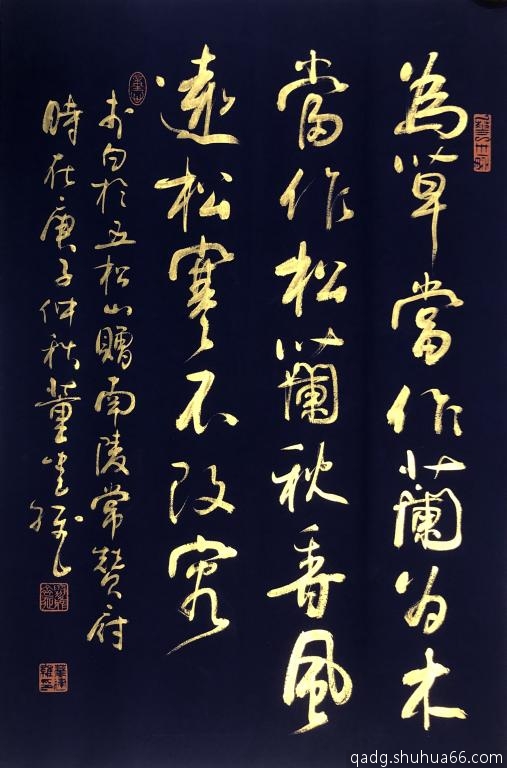 為草當作蘭为木
當作松蘭秋香風
遠松寒不改容
李白於五松山贈南陵常赞府
時在庚子仲秋董
qadg.shuhua66.com